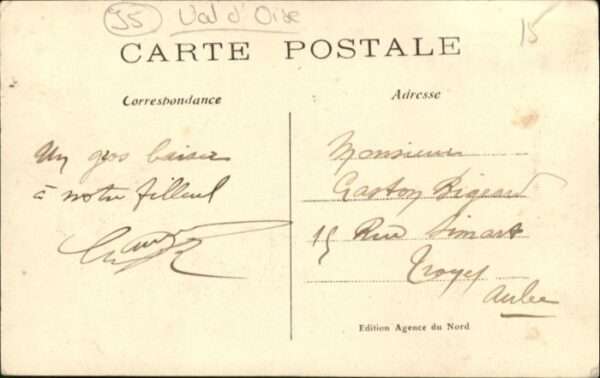 95 Val d'Oise
15
CARTE POSTALE
Correspondance
Adresse
Un gros baiser
à notre filleul
Monsieur
Gaston Bigeard
15 Rue Simart
Troyes
Aube
Edition Agence du Nord